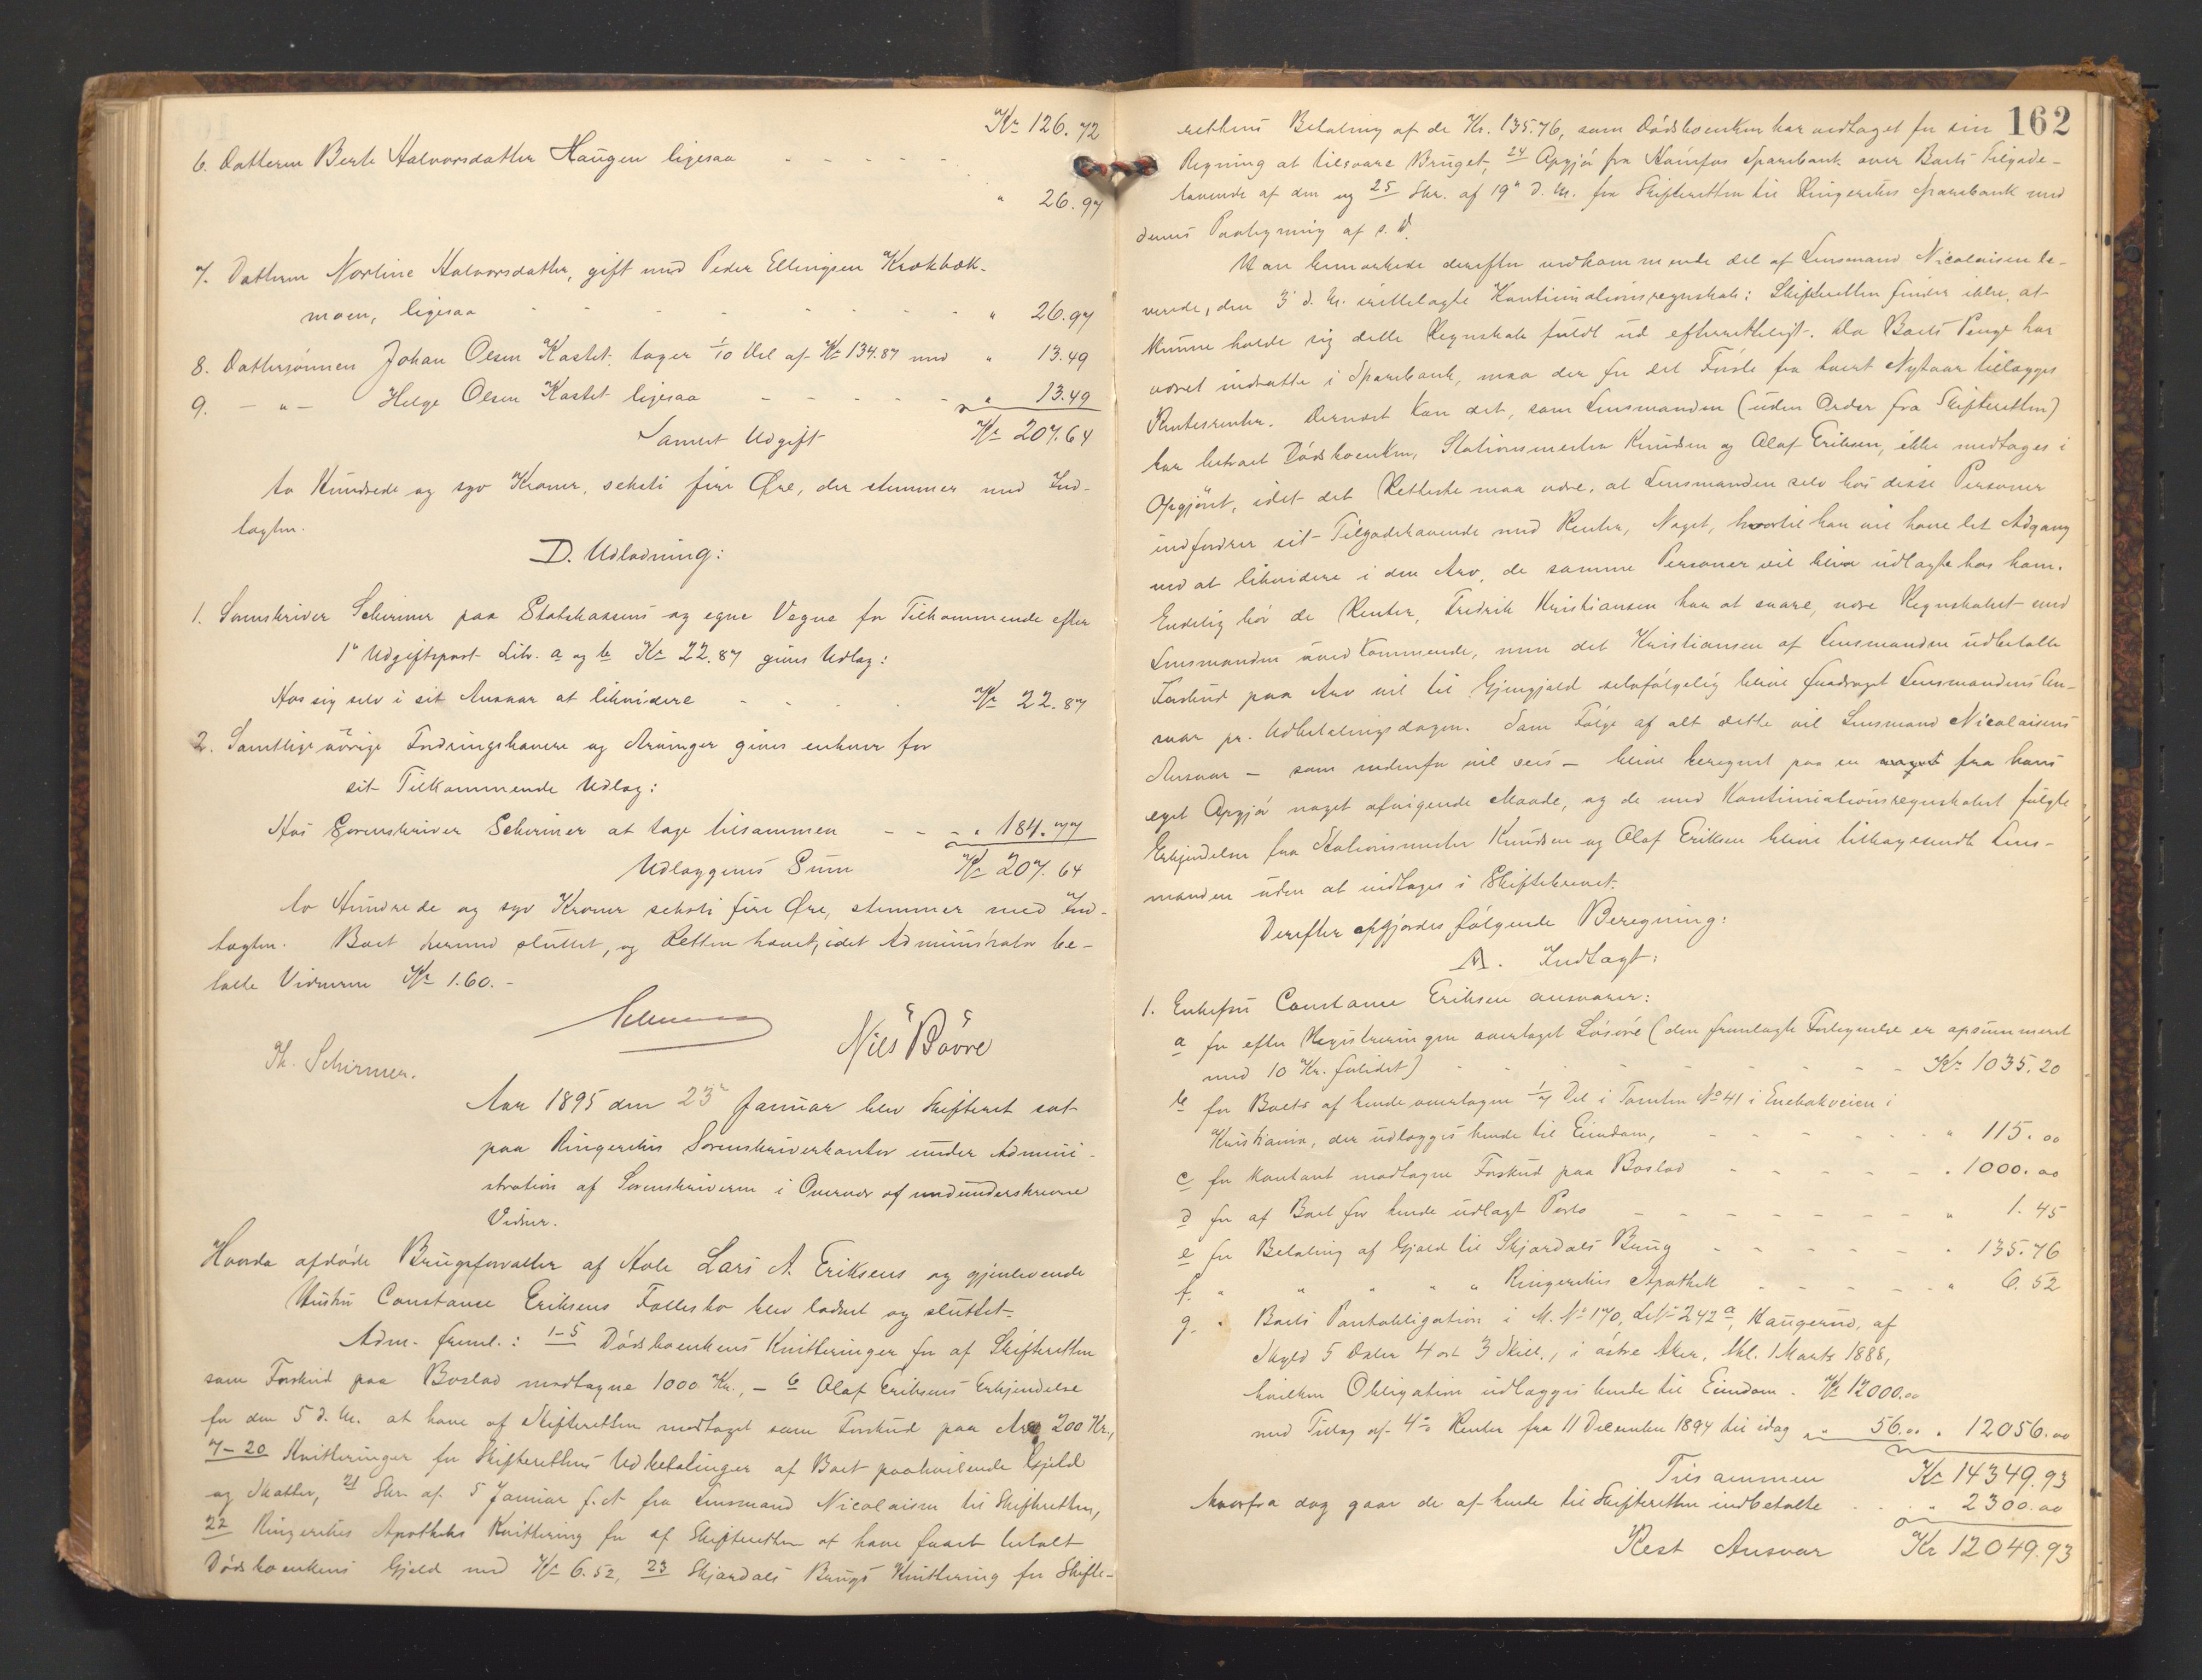 Kr 126.72
6. Datteren Berte Halvorsdatter Haugen ligesaa - - - - -
" 26.97
7. Datteren Nortine Halvorsdatter, gift med Peder Ellingsen Krokbæk-
moen, ligesaa - - - - - - " 26.97
8. Dattersønnen Johan Olsen Kastet, tager 1/10 Del af Kr 134.87 med " 13.49
9. - " - Helge Olsen Kastet ligesaa - - - - " 13.49
Samlet Udgift Kr 207.64
to Hundrede og syv Kroner, seksti fire Øre, der stemmer med Ind-
tægten.
D. Udlodning:
1. Sorenskriver Schirmer paa Statskassens og egne Vegne for Tilkommende efter
1ste Udgiftspost Litr. a og b Kr 22.87 gives Udlæg:
Hos sig selv i sit Ansvar at likvidere - - - Kr 22.87
2. Samtlige øvrige Fordringshavere og Arvinger gives enhver for
sit Tilkommende Udlæg:
Hos Sorenskriver Schirmer at tage tilsammen - - - " 184.77
Udlæggenes Sum Kr 207.64
to Hundrede og syv Kroner seksti fire Øre, stemmer med Ind-
tægten. Boet dermed sluttet, og Retten hævet, idet Administrator be-
talte Vidnerne Kr 1.60.-
Schirmer
Th. Schirmer. Nils Bövre
Aar 1895 den 23de Januar blev Skifteret sat
paa Ringerikes Sorenskriverkontor under Admini-
stration af Sorenskriveren i Overvær af medunderskrevne
Vidner.
Hvorda afdøde Brugsforvalter af Hole Lars A. Eriksens og gjenlevende
Hustru Constance Eriksens Fællesbo blev lodnet og sluttet.
Adm. freml.: 1-5 Dødsboenkens Kvitteringer for af Skifteretten
som Forskud paa Boslod modtagne 1000 Kr., - 6 Olaf Eriksens Erkjendelse
for den 5 d. M. at have af Skifteretten modtaget som Forskud paa Arv 200 Kr.,
7-20 Kvitteringer for Skifterettens Udbetalinger af Boet paahvilende Gjeld
og Skatter, 21 Skr. af 5 Januar f.A. fra Lensmand Nicolaisen til Skifteretten,
22 Ringerikes Apotheks Kvittering for af Skifteretten at have faaet betalt
Dødsboenkens Gjeld med Kr 6.52, 23 Skjærdals Brugs Kvittering for Skifte-
162
rettens Betaling af de Kr. 135.76, som Dødsboenken har vedtaget for sin
Regning at tilsvare Bruget, 24 Opgjør fra Hønefos Sparebank over Boets Tilgode-
havende af den og 25 Skr. af 19de d. M. fra Skifteretten til Ringerikes Sparebank med
dennes Paategning af s. D.
Man bemærkede derefter vedkommende det af Lensmand Nicolaisen le-
verede, den 3de d. M. istillelagte Kontinuationsregnskab: Skifteretten finder ikke, at
kunne holde sig dette Regnskab fuldt ud efterrettelig. Da Boets Penge har
været indsatte i Sparebank, maa der for det Første fra hvert Nytaar tillægges
Rentesrenter. Dernæst kan det, som Lensmanden (uden Order fra Skifteretten)
har betalt Dødsboenken, Stationsmester Knudsen og Olaf Eriksen, ikke medtages i
Opgjøret, idet det Retteste maa være, at Lensmanden selv hos disse Personer
indfordrer sit Tilgodehavende med Renter, Noget, hvortil han vil have let Adgang
ved at likvidere i den Arv, de samme Personer vil blive udlagte hos ham.
Endelig bør de Renter, Fredrik Kristiansen har at svare, være Regnskabet med
Lensmanden uvedkommende, men det Kristiansen af Lensmanden udbetalte
Forskud paa Arv vil til Gjengjæld selvfølgelig blive fradraget Lensmandens An-
svar pr. Udbetalingsdagen. Som Følge af alt dette vil Lensmand Nicolaisens
Ansvar - som nedenfor vil sees - blive beregnet paa en noget fra hans
eget Opgjør noget afvigende Maade, og de med Kontinuationsregnskabet fulgte
Erkjendelser fra Stationsmester Knudsen og Olaf Eriksen blive tilbagesendte Lens-
manden uden at indtages i Skiftebrevet.
Derefter opgjordes følgende Beregning:
A. Indtægt:
1. Enkefru Constance Eriksen ansvarer:
a for efter Registreringen overtaget Løsøre (den fremlagte Fortegnelse er opsummeret
med 10 Kr. forlidet) - - - - - - - Kr 1035.20
b for Boets af hende overtagne 1/7 Del i Tomten No 41 i Enebakveien i
Kristiania, der udlægges hende til Eiendom, - - - - - " 115.00
c for kontant modtagne Forskud paa Boslod - - - - - " 1000.00
d for af Boet for hende udlagt Porto - - - - - - - " 1.45
e for Betaling af Gjæld til Skjærdals Brug - - - - - " 135.76
f. " " " " " Ringerikes Apothek - - - - " 6.52
g. " Boets Pantobligation i M. No 170, LNo 242a, Haugerud, af
Skyld 5 Daler 4 ort 3 Skill., i østre Aker, thl. 1 Marts 1888,
hvilken Obligation udlægges hende til Eiendom. Kr 12000.00
med Tillæg af 4% Renter fra 11 December 1894 til idag " 56.00 " 12056.00
Tilsammen Kr 14349.93
hvorfra dog gaar de af hende til Skifteretten indbetalte - - - " 2300.00
Rest Ansvar Kr 12049.93